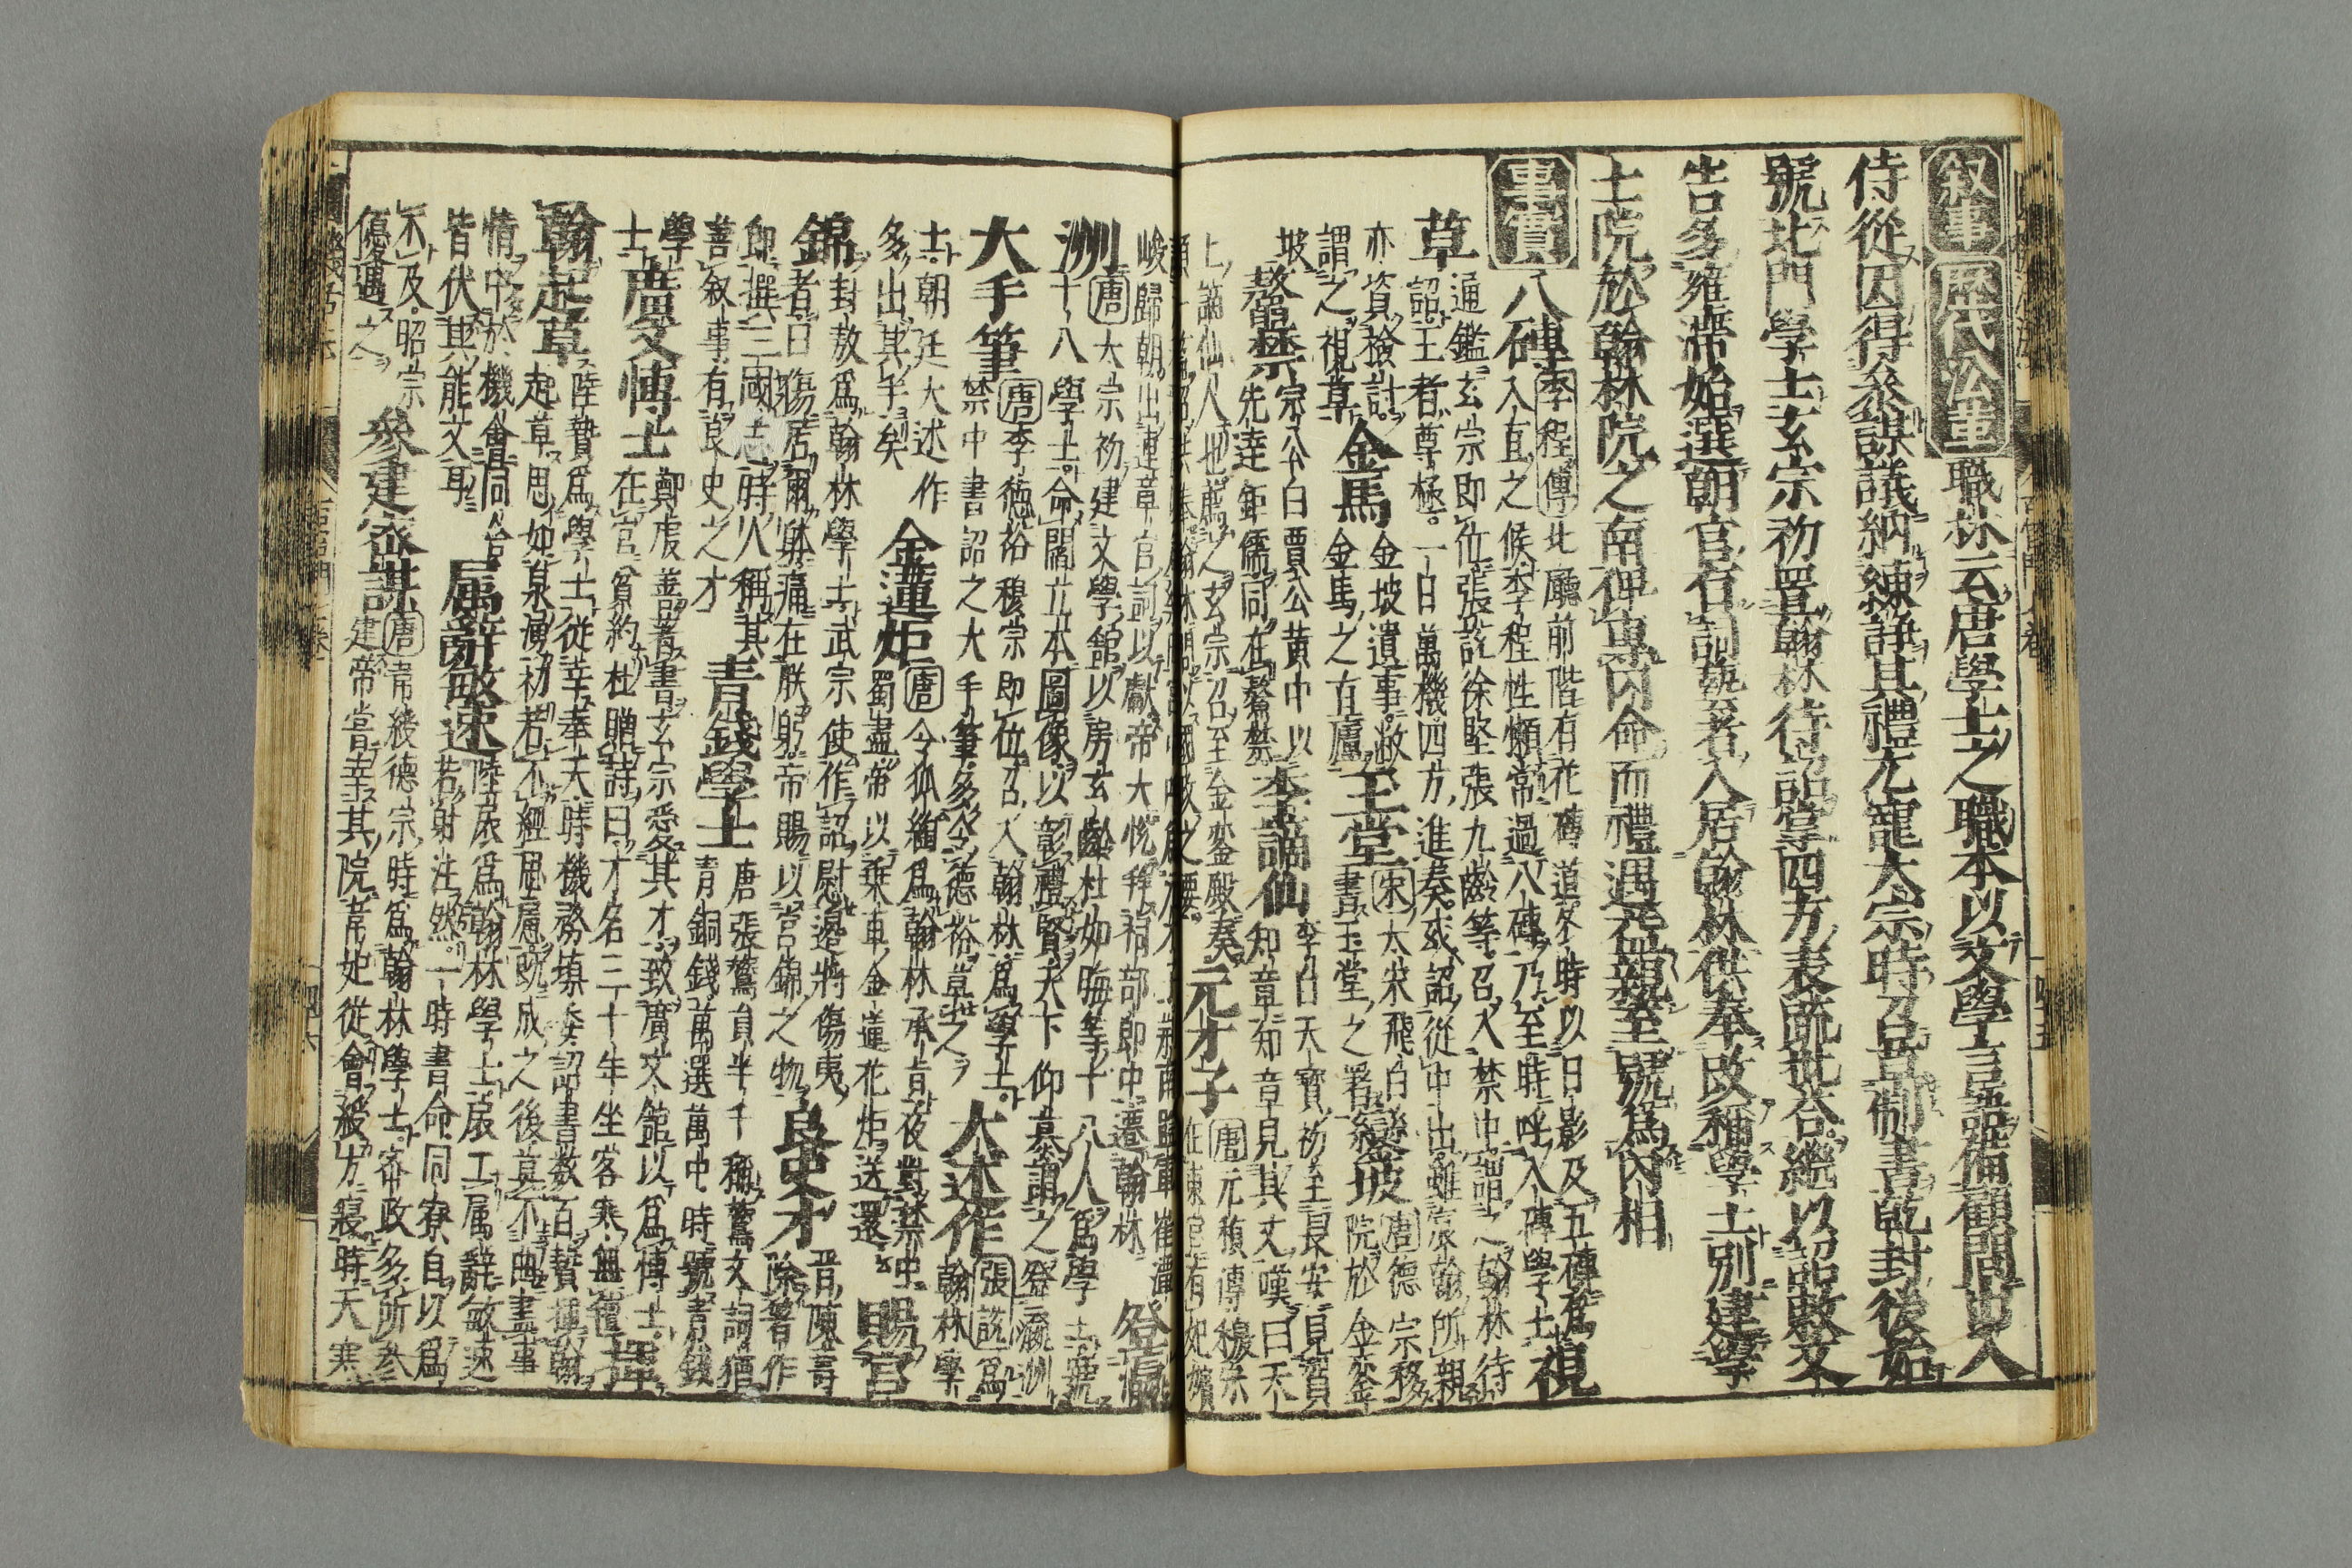 叙事 歴代沿革 職林云唐學士之職本以文學言語備顧問出入
侍從因得參謀議納練諍其禮尤寵太宗時召名儒草制書乾封後始
號北門學士玄宗初置翰林待詔掌四方表疏批荅繼以詔敕文
告多雍滯始選朝官有詞藝者入居翰林供奉改稱學士別建學
士院於翰林院之南俾專内命而禮遇益親至號爲内相
事實 八磚 李程傳 北廳前階有花磚道冬時以日影及五磚爲
入直之候李程性懶常過八磚乃至時呼八磚學士 視
草 通鑑玄宗即位張説徐堅張九齡等召入禁中謂之翰林待
詔王者尊極一日萬機四方進奏或詔從中出雖宸翰所親
亦資檢討
謂之視草 金馬 金坡遺事
金馬之有廬 玉堂 宋 太宋飛白
書玉堂之署 鑾坡 唐德宗移
院於金鑾
坡 鰲禁 宗公白賈公黄中以
先達鉅儒同在鰲禁 李謫仙 李白天寶初至長安見賀
知章知章見其文嘆曰天
上謫仙人也薦之玄宗召至金鑾殿奏 元才子 唐元稹傳穆宗
登瀛
洲 唐 大宗初建文學館以房玄齡杜如晦等十八人爲學士號
十八學士命閻立本圖像以彰禮賢天下仰慕謂之登瀛洲
大手筆 唐李德裕穆宗即位召入翰林爲學士
禁中書詔之大手筆多令德裕草之 大述作 張説爲
翰林學
士朝廷大述作
多出其手矣 金蓮炬 唐令狐綯爲翰林承旨夜對禁中
蜀盡帝以乗車金蓮花炬送還 賜宮
錦 封敖爲翰林學士武宗使作詔慰邉將傷夷
者曰傷居爾躰痛在朕躬帝賜以宮錦之物 良史才 晋陳壽
除著作
即撰三國志時人稱其
善叙事有良史之才 青錢學士 唐張鷟員半千稱鷟文詞猶
青銅錢萬選萬中時號青錢
學
士 廣文博士 鄭虔善著書玄宗愛其才致廣文館以爲博士
在官貧約杜贈詩曰才名三十年坐客寒無氊 揮
翰起草 陸贄爲學士從幸奉天時機務填委詔書數百贄揮翰
起草思如泉湧初若不經思慮既成之後莫不曲盡事
情中於機會同舍
皆伏其能文耳 属辭敏速 陸扆爲翰林學士扆工属辭敏速
若射注然一時書命同寮自以爲
不及昭宗
優遇之 參建密謀 唐韋綬德宗時爲翰林學士密政多所參
建帝嘗幸其院韋妃從會綬方寢時天寒